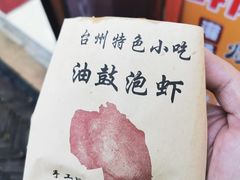 台州特色小吃
油鼓泡虾
手工